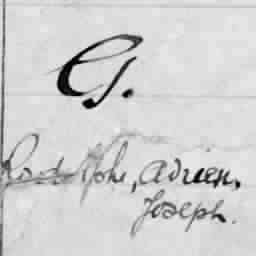 G.
Rodolphe, Adrien,
Joseph.